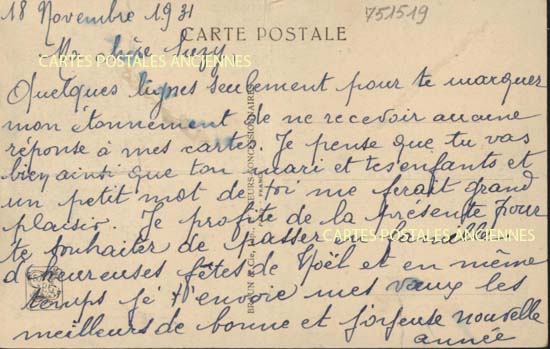 18 Novembre 1931
751519
CARTE POSTALE
Ma chère Suzy
CARTES POSTALES ANCIENNES
Quelques lignes seulement pour te marquer
mon étonnement de ne recevoir aucune
réponse à mes cartes. Je pense que tu vas
bien ainsi que ton mari et tes enfants et
un petit mot de toi me ferait grand
plaisir. Je profite de la présente pour
te souhaiter de passer en famille
CARTES POSTALES ANCIENNES
d'heureuses fêtes de Noël et en même
temps je t'envoie mes vœux les
meilleurs de bonne et joyeuse nouvelle
année
BRAUN & Cie
CONCESSIONNAIRES